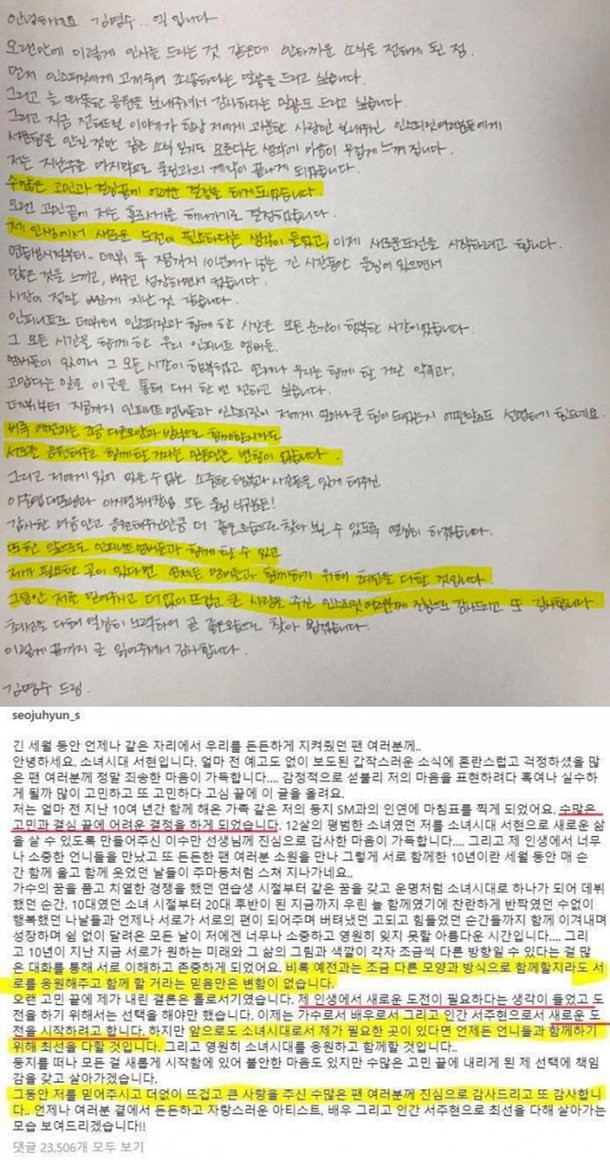 안녕하세요 김명수.. 엘 입니다
오랜만에 이렇게 인사를 드리는 것 같은데 안타까운 소식을 전하게 된 점.
먼저 인스피릿에게 고개숙여 죄송하다는 말씀을 드리고 싶습니다.
그리고 늘 따뜻한 응원을 보내주셔서 감사하다는 말씀도 드리고 싶습니다.
그리고 지금 전해드릴 이야기가 항상 저에게 과분한 사랑만 보내주신 인스피릿여러분들에게
서운함을 안긴 것만 같은 소식 일지도 모른다는 생각에 마음이 무겁게 느껴집니다.
저는 지난주를 마지막으로 울림과의 계약이 끝나게 되었습니다.
수많은 고민과 결심끝에 어려운 결정을 하게되었습니다
오랜 고민끝에 저는 홀로서기를 해나가기로 결정했습니다.
제 인생에서 새로운 도전이 필요하다는 생각이 들었고, 이제 새로운도전을 시작하려고 합니다.
연습생시절부터~ 데뷔 후 지금까지 10년여가 넘는 긴 시간동안 울림에 있으면서
많은 것을 느끼고, 배우고 성장하면서 컸습니다.
시간이 정말 빠르게 지난 것 같습니다.
인피니트로 데뷔해 인스피릿과 함께 한 시간은 모든 순간이 행복한 시간이었습니다.
그 모든 시간을 함께 한 우리 인피니트 멤버들.
멤버들이 있어서 그 모든 시간이 행복했고 언제나 우리는 함께 할 거란 약속과.
고맙다는 말을 이 글을 통해 다시 한 번 전하고 싶습니다.
데뷔부터 지금까지 인피니트 멤버들과 인스피릿이 저에게 얼마나 큰 힘이 되었는지 어떤말로도 설명하기 힘드네요.
비록 예전과는 조금 다른모양과 방식으로 함께할지라도
서로를 응원해주고 함께 할 거라는 믿음만은 변함이 없습니다.
그리고 저에게 있어 잊을 수 없는 소중한 추억과 시간들을 있게 해주신
이중엽대표님과 이기영부사장님 모든 울림 식구분들!
감사한 마음안고 응원해주신만큼 더 좋은모습으로 찾아 뵐 수 있도록 열심히 하겠습니다.
또한 앞으로도 인피니트 멤버들과 함께 할 수 있고
제가 필요한 곳이 있다면 언제든 멤버들과 함께하기 위해 최선을 다할 것입니다.
그동안 저를 믿어주시고 더없이 뜨겁고 큰 사랑을 주신 인스피릿 여러분께 진심으로 감사드리고 또 감사합니다.
최선을 다해 열심히 노력하여 곧 좋은모습으로 찾아 뵙겠습니다.
이렇게 끝까지 글 읽어주셔서 감사합니다.
김명수 드림.
seojuhyun_s
긴 세월 동안 언제나 같은 자리에서 우리를 든든하게 지켜줬던 팬 여러분께..
안녕하세요. 소녀시대 서현입니다. 얼마 전 예고도 없이 보도된 갑작스러운 소식에 혼란스럽고 걱정하셨을 많
은 팬 여러분께 정말 죄송한 마음이 가득합니다.... 감정적으로 섣불리 저의 마음을 표현하려다 혹여나 실수하
게 될까 많이 고민하고 또 고민하다 고심 끝에 이 글을 올려요.
저는 얼마 전 지난 10여 년간 함께 해온 가족 같은 저의 둥지 SM과의 인연에 마침표를 찍게 되었어요. 수많은
고민과 결심 끝에 어려운 결정을 하게 되었습니다. 12살의 평범한 소녀였던 저를 소녀시대 서현으로 새로운 삶
을 살 수 있도록 만들어주신 이수만 선생님께 진심으로 감사한 마음이 가득합니다.... 그리고 제 인생에서 너무
나 소중한 언니들을 만났고 또 든든한 팬 여러분 소원을 만나 그렇게 서로 함께한 10년이란 세월 동안 매 순
간 함께 울고 함께 웃었던 날들이 주마등처럼 스쳐 지나가네요..
가수의 꿈을 품고 치열한 경쟁을 했던 연습생 시절부터 같은 꿈을 갖고 운명처럼 소녀시대로 하나가 되어 데뷔
했던 순간. 10대였던 소녀 시절부터 20대 후반이 된 지금까지 우린 늘 함께였기에 찬란하게 반짝였던 수없이
행복했던 나날들과 언제나 서로가 서로의 편이 되어주며 버텨냈던 고되고 힘들었던 순간들까지 함께 이겨내며
성장하며 쉼 없이 달려온 모든 날이 저에겐 너무나 소중하고 영원히 잊지 못할 아름다운 시간입니다.... 그리
고 10년이 지난 지금 서로가 원하는 미래와 그 삶의 그림과 색깔이 각자 조금씩 다른 방향일 수 있다는 걸 많
은 대화를 통해 서로 이해하고 존중하게 되었어요. 비록 예전과는 조금 다른 모양과 방식으로 함께할지라도 서
로를 응원해주고 함께 할 거라는 믿음만은 변함이 없습니다.
오랜 고민 끝에 제가 내린 결론은 홀로서기였습니다. 제 인생에서 새로운 도전이 필요하다는 생각이 들었고 도
전을 하기 위해서는 선택을 해야만 했습니다. 이제는 가수로서 배우로서 그리고 인간 서주현으로서 새로운 도
전을 시작하려고 합니다. 하지만 앞으로도 소녀시대로서 제가 필요한 곳이 있다면 언제든 언니들과 함께하기
위해 최선을 다할 것입니다. 그리고 영원히 소녀시대를 응원하고 함께할 것입니다..
둥지를 떠나 모든 걸 새롭게 시작함에 있어 불안한 마음도 있지만 수많은 고민 끝에 내리게 된 제 선택에 책임
감을 갖고 살아가겠습니다.
그동안 저를 믿어주시고 더없이 뜨겁고 큰 사랑을 주신 수많은 팬 여러분께 진심으로 감사드리고 또 감사합니
다.. 언제나 여러분 곁에서 든든하고 자랑스러운 아티스트, 배우 그리고 인간 서주현으로 최선을 다해 살아가는
모습 보여드리겠습니다!!
댓글 23,506개 모두 보기